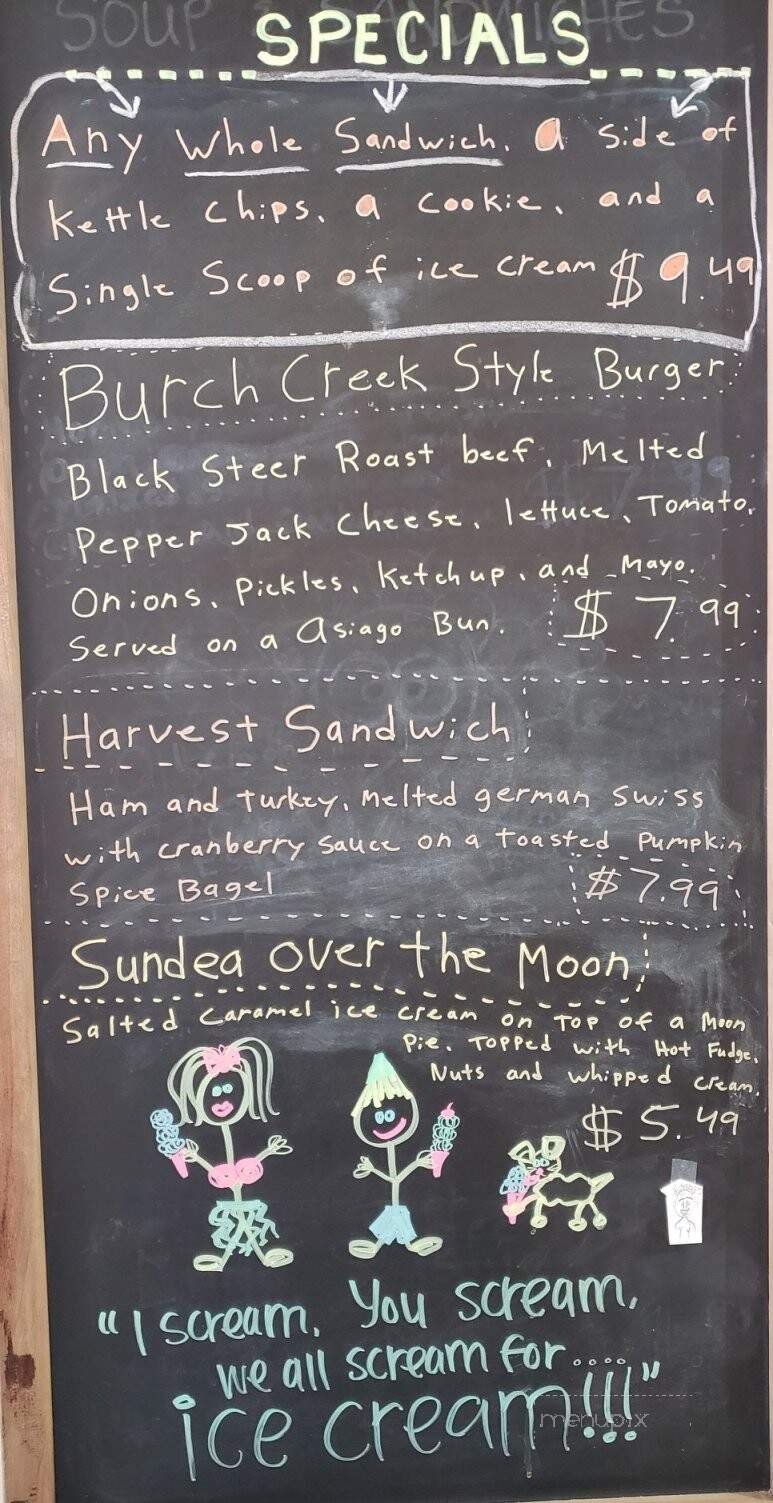 SOUP & SANDWICHES
SPECIALS
Any Whole Sandwich, a side of
Kettle chips, a cookie, and a
Single Scoop of ice cream $9.49
Burch Creek Style Burger
Black Steer Roast beef, Melted
Pepper Jack Cheese, lettuce, Tomato,
Onions, Pickles, Ketchup, and Mayo.
Served on a Asiago Bun. $7.99
Harvest Sandwich
Ham and Turkey, Melted german swiss
with cranberry sauce on a toasted Pumpkin
Spice Bagel $7.99
Sundea over the Moon
Salted Caramel ice cream on Top of a Moon
Pie. Topped with Hot Fudge,
Nuts and whipped cream.
$5.49
"I scream, You scream,
we all scream for....
ice cream!!!"
menupix